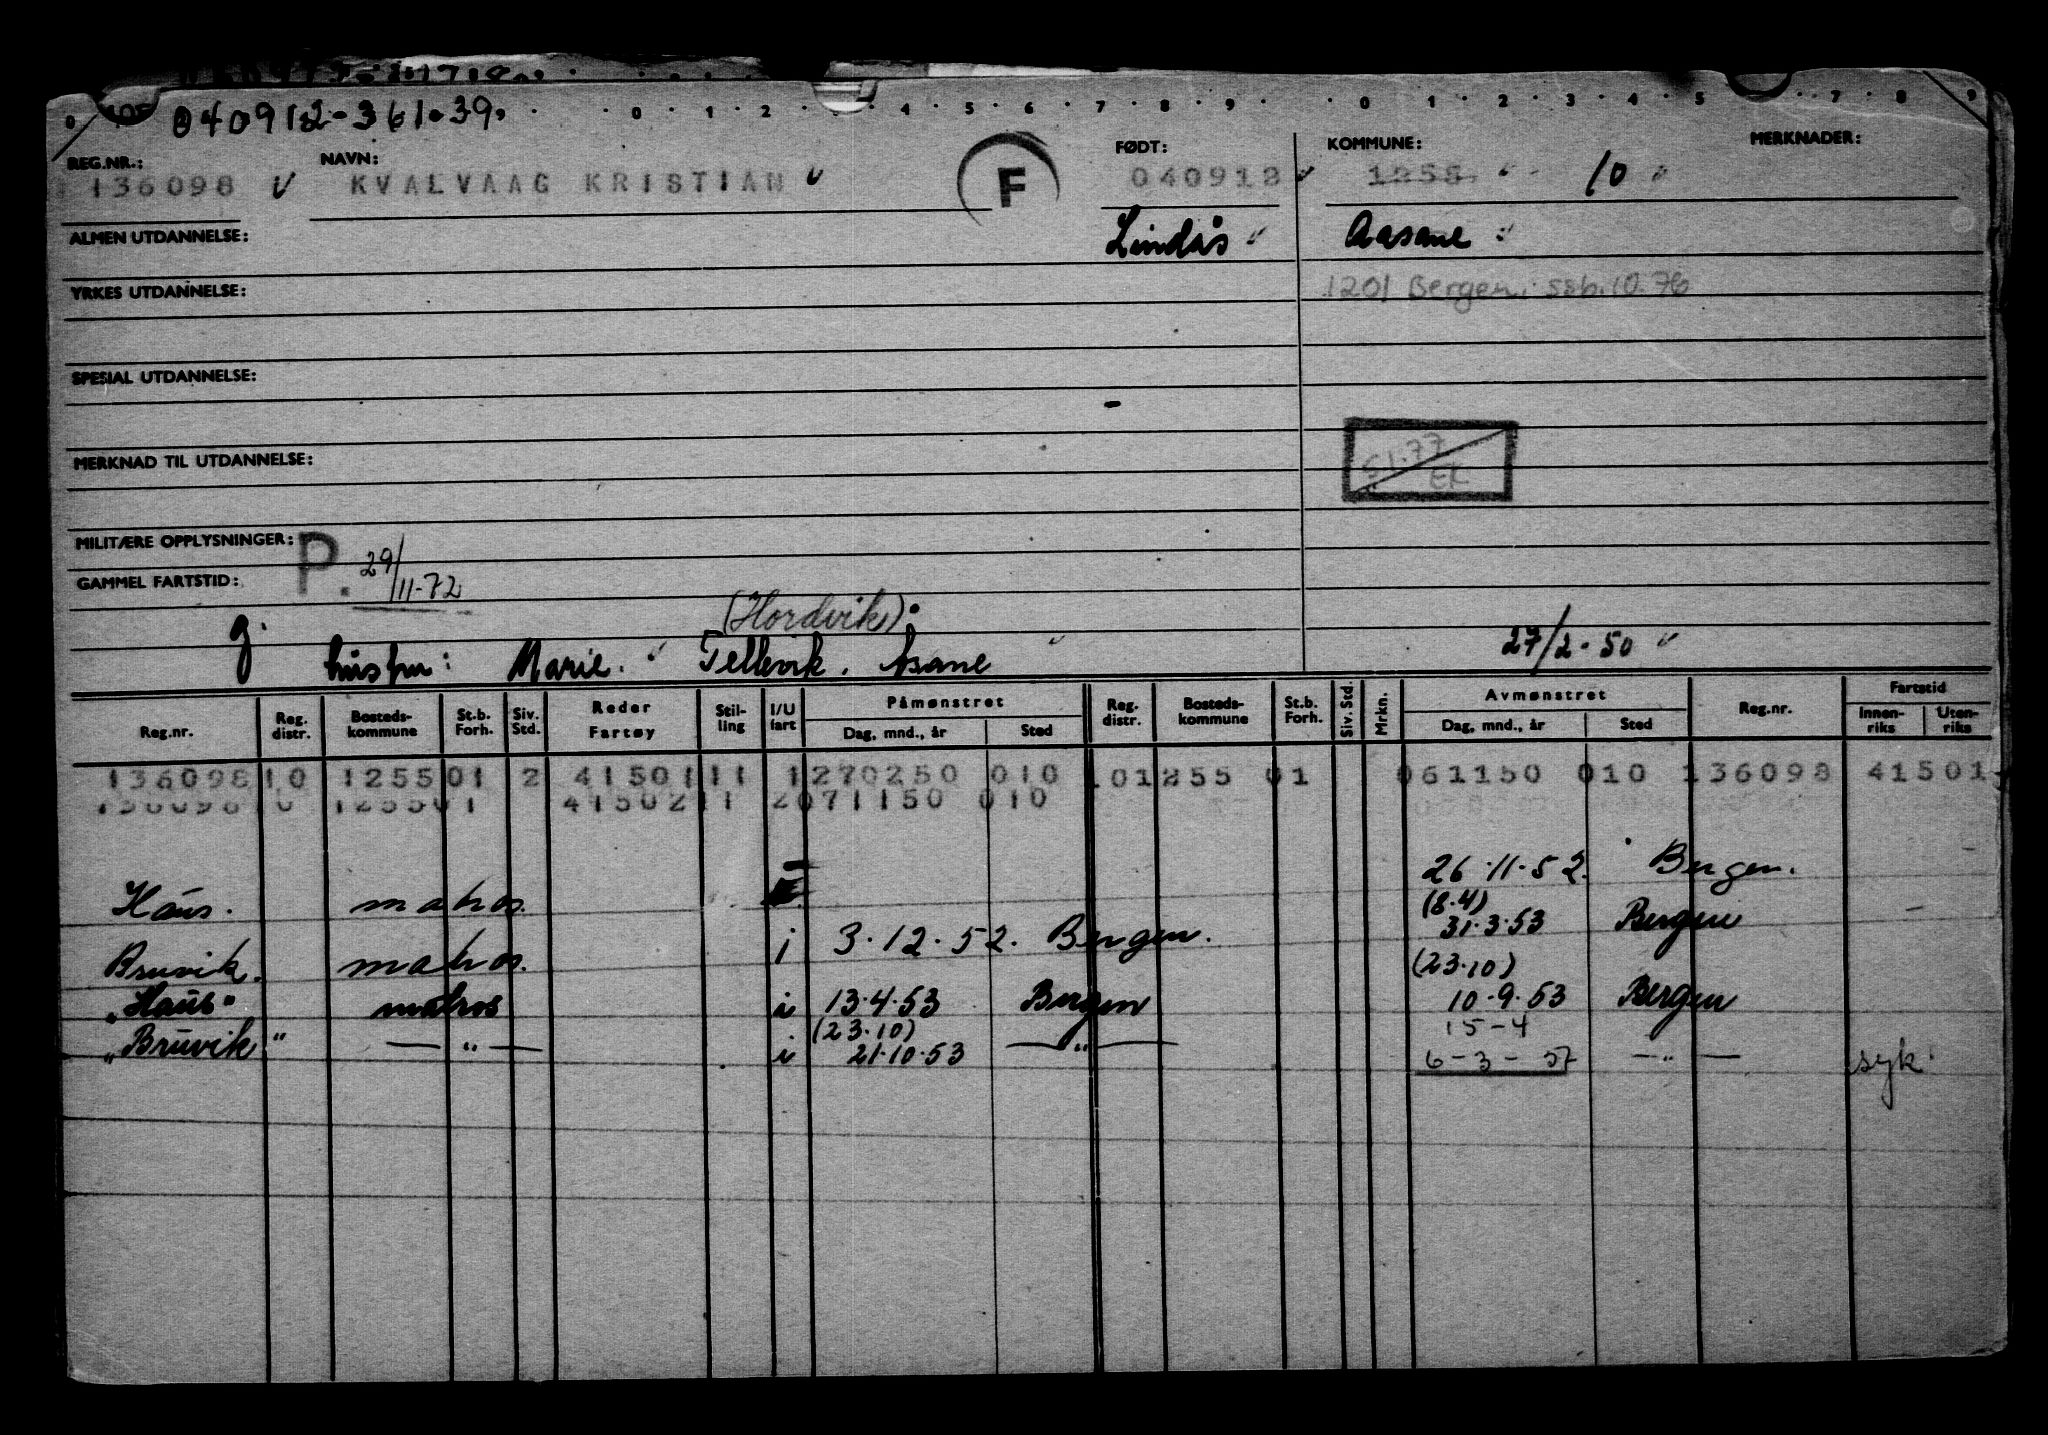 040912-36139
0 1 2 4 5 6 7 8 9 0 1 2 3 4 5 7 8 9
REG.NR.: NAVN: FØDT: KOMMUNE: MERKNADER:
136098 KVALVAAG KRISTIAN F 040912 1255 10
ALMEN UTDANNELSE: Lindås Aasane
YRKES UTDANNELSE: 1201 Bergen, ssb. 10.76
SPESIAL UTDANNELSE:
MERKNAD TIL UTDANNELSE: 51.77
MILITÆRE OPPLYSNINGER: P. 29/11-72
GAMMEL FARTSTID:
(Hordvik)
g. hustru: Marie. Tellevik. Åsane 27/2-50
Reg.nr. Reg. distr. Bosteds-kommune St.b. Forh. Siv. Std. Reder Fartøy Stil-ling I/U fart Påmønstret Dag, mnd., år Sted Reg. distr. Bosteds-kommune St.b. Forh. Siv. Std. Mrkn. Avmønstret Dag, mnd., år Sted Reg.nr. Fartstid Innen-riks Uten-riks
136098 10 1255 01 2 41501 11 1 270250 010 101255 01 061150 010 136098 41501
136098 10 1255 01 41502 11 2 071150 010
Haus. matros. 26.11.52. Bergen.
(8.4)
Bruvik. matros. i 3.12.52. Bergen. 31.3.53 Bergen
(23.10)
"Haus" matros i 13.4.53 Bergen 10.9.53 Bergen
(23.10) 15-4
"Bruvik" — " — i 21.10.53 — " — 6-3-57 — " — syk.